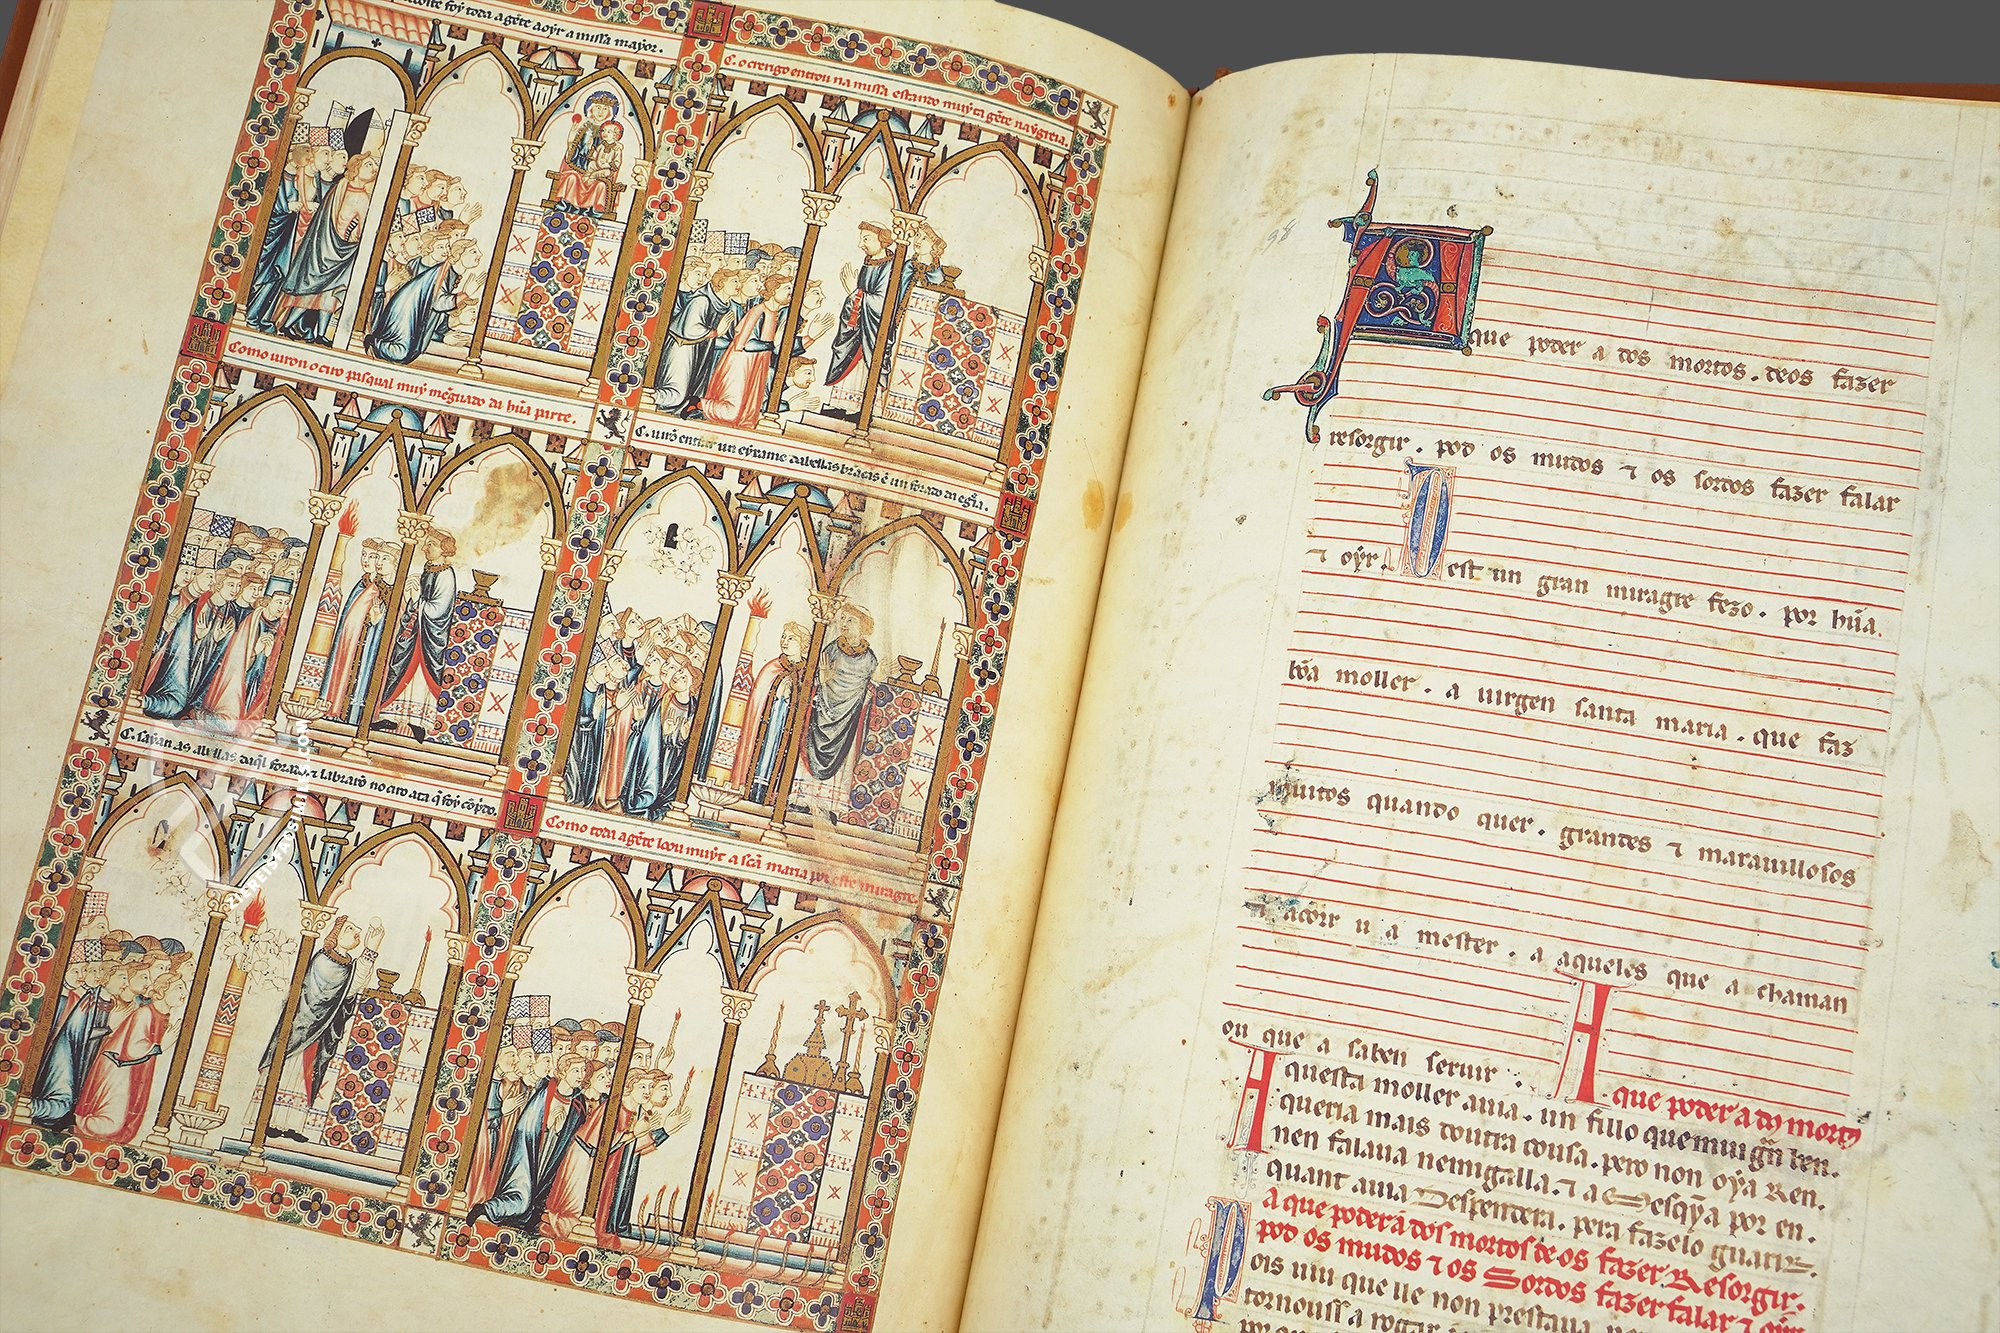 foy toda a gẽte a oyr a missa mayor.
C. o crerigo entrou na missa estando muyta gẽte na ygreia
Como uiron o cirio pasqual muy mẽguado da hũa parte.
C. uirõ entrar un exame dabellas brãcas ẽ un forado da egr̃ia.
C. sayan as abellas daq̃l forado ⁊ labrarõ no cirio ata q̃ foy cõp̃to.
Como toda a gẽte loou muyt a sc̃a maria por este miragre.
ZIEREIS FAKSIMILES.COM
38
A que poder a dos mortos. deos fazer
resorgir. pod os mudos ⁊ os sordos fazer falar
⁊ oyr. Dest un gran miragre fezo. por hũa.
bõa moller. a uirgen santa maria. que faz
muitos quando quer. grandes ⁊ marauillosos
⁊ acorr u a mester. a aqueles que a chaman
ou que a saben seruir. A que poder a dos mortos
Aquesta moller auia. un fillo que mui gran ben.
queria mais doutra cousa. pero non oya ren.
nen falaua nemigalla. ⁊ a Desq̃ya por en.
quant auia Despendera. pera fazelo guarir.
A que poder a dos mortos deos fazer. Resorgir.
pod os mudos ⁊ os Sordos fazer falar ⁊ oyr
Pois uiu que lle non prestaua
tornouss a rogar